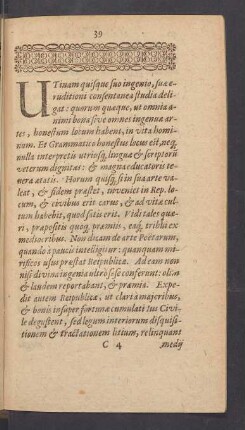 39
UTinam quisque suo ingenio, suæ e-
ruditioni consentanea studia deli-
gat: quorum quæque, ut omnia a-
nimi bona sive omnes ingenuæ ar-
tes, honestum locum habent, in vita homi-
num. Et Grammatico honestus locus est, neq;
nulla interpretis utriusq; linguæ & scriptorū
veterum dignitas: & magna educatoris te-
neræ ætatis. Horum quisq; si in sua arte va-
leat, & fidem præstet, inveniet in Rep. lo-
cum, & civibus erit carus, & ad vitæ cul-
tum habebit, quod satis erit. Vidi tales quæ-
ri, præpositis quoq; præmiis, eaq; tribui ex
mediocribus. Non dicam de arte Poëtarum,
quando à paucis intelligitur: quanquam mi-
rificos usus præstat Reipublicæ. Ad eam non
nisi divina ingenia ultrò sese conferant: olim
& laudem reportabant, & præmia. Expe-
dit autem Reipublicæ, ut clari majoribus,
& bonis insuper fortunæ cumulati jus Civi-
le degustent, sed legum interiorum disquisi-
tionem & tractationem litium, relinquant
C 4 medij